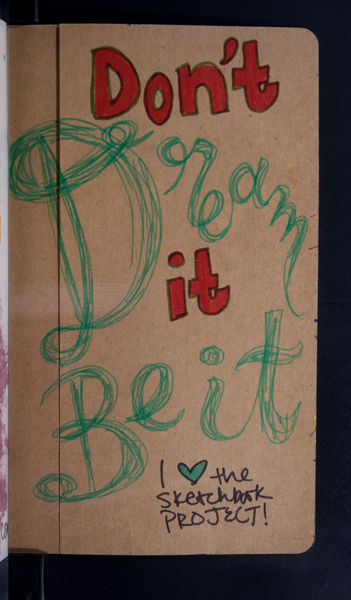 Don't
Dream
it
Be it
I ♥ the
Sketchbook
PROJECT!